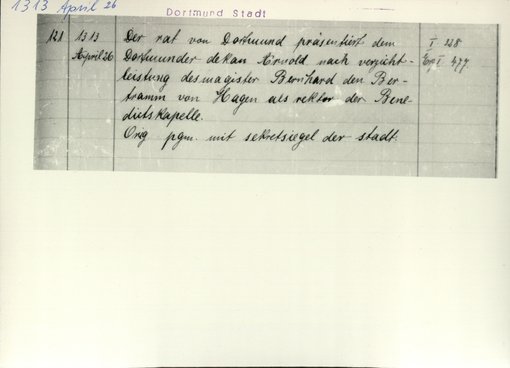 1313 April 26
Dortmund Stadt
121 1313 Der rat von Dortmund präsentiert dem I 328
April 26 Dortmunder dekan Arnold nach verzicht- Erg I 477.
leistung des magister Bernhard den Ber-
tramm von Hagen als rektor der Bene-
dictskapelle.
Orig pgm. mit sekretsiegel der stadt.